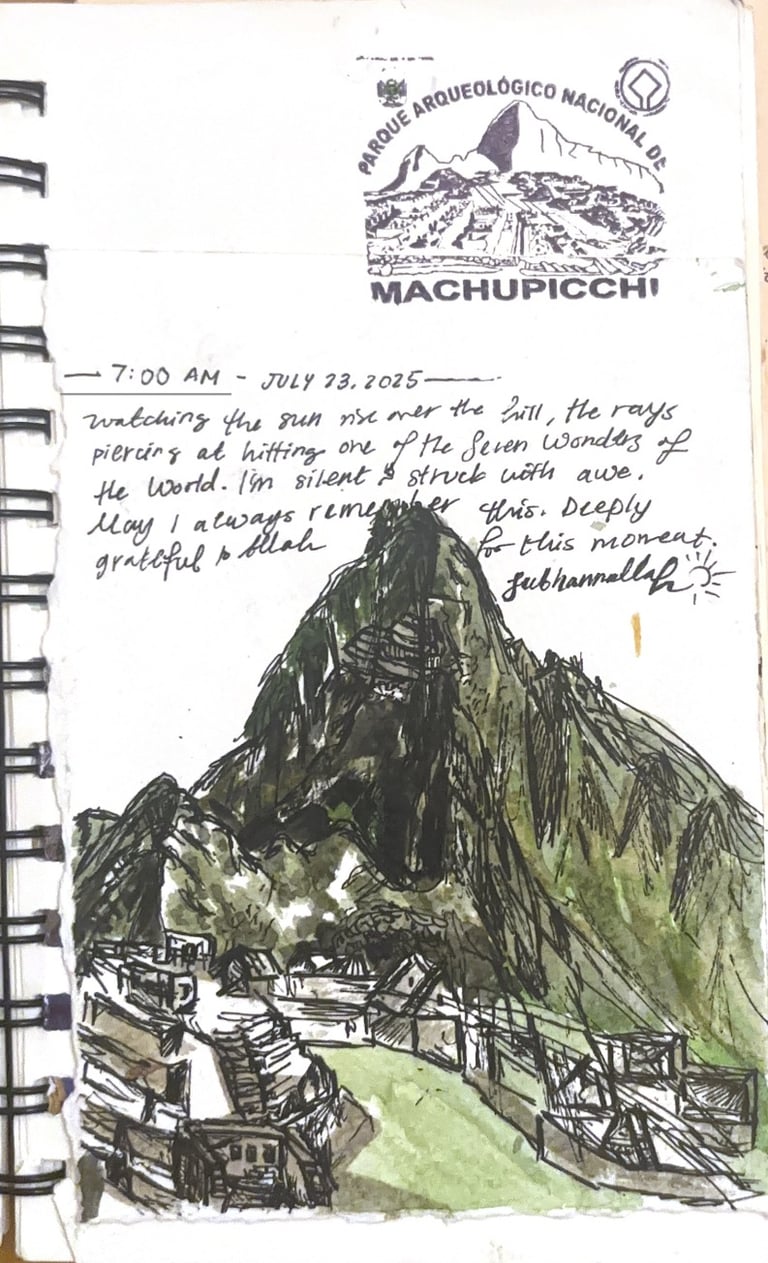 PARQUE ARQUEOLÓGICO NACIONAL DE
MACHUPICCHI
— 7:00 AM - JULY 23, 2025 —
watching the sun rise over the hill, the rays
piercing at hitting one of the Seven Wonders of
the World. I'm silent & struck with awe.
May I always remember this. Deeply
grateful to Allah for this moment.
Subhannallah